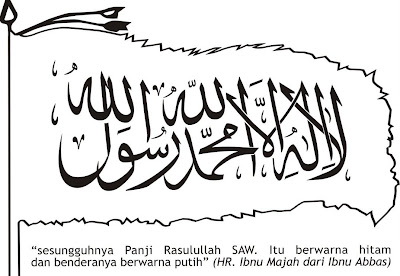 لا إله إلا الله محمد رسول الله
“sesungguhnya Panji Rasulullah SAW. Itu berwarna hitam
dan benderanya berwarna putih” (HR. Ibnu Majah dari Ibnu Abbas)